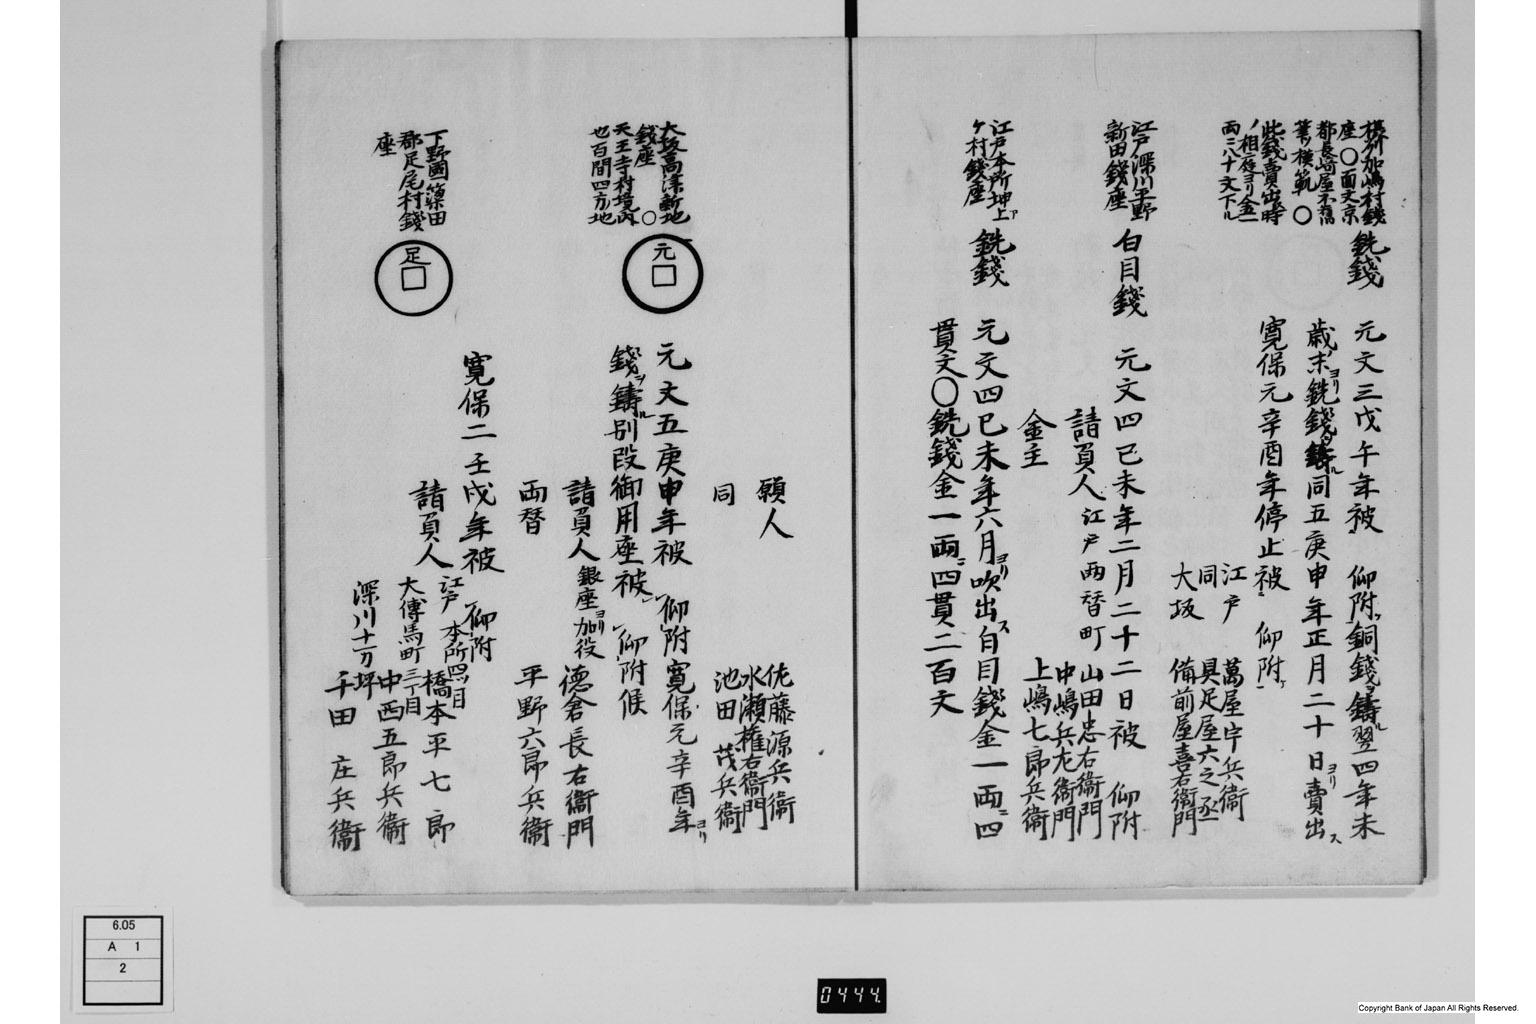 攝州加嶋村錢
座〇面文京
都長崎屋不旧
筆ノ模範〇
此錢賣出時
ノ相庭ヨリ金一
両ニ八十文下ル
銑錢
元文三戊午年被　仰附銅錢ヲ鑄ル翌四年未
歳末ヨリ銑錢ヲ鑄ル同五庚申年正月二十日ヨリ賣出ス
寛保元辛酉年停止被　仰附
江戸　萬屋宇兵衞
同　具足屋六之丞
大坂　備前屋喜右衞門
江戸深川平野
新田錢座
白目錢
元文四己未年二月二十二日被　仰附
請負人　江戸両替町　山田忠右衞門
中嶋兵左衞門
金主　上嶋七郎兵衞
江戸本所押上
ケ村錢座
銑錢
元文四己未年六月ヨリ吹出ス白目錢金一両ニ四
貫文〇銑錢金一両ニ四貫二百文
願人　佐藤源兵衞
水瀬權右衞門
同　池田茂兵衞
大坂高津新地
錢座　〇
天王寺村境内
也百間四方ノ地
元
元文五庚申年被　仰附寛保元辛酉年ヨリ
錢ヲ鑄ル別段御用座被　仰附候
請負人　銀座ヨリ加役　德倉長右衞門
両替　平野六郎兵衞
下野國簗田
郡足尾村錢
座
足
寛保二壬戌年被　仰附
請負人　江戸　本所四ツ目　橋本平七郎
大傳馬町三丁目　中西五郎兵衞
深川十万坪　千田庄兵衞
6.05
A 1
2
0444.
Copyright Bank of Japan All Rights Reserved.